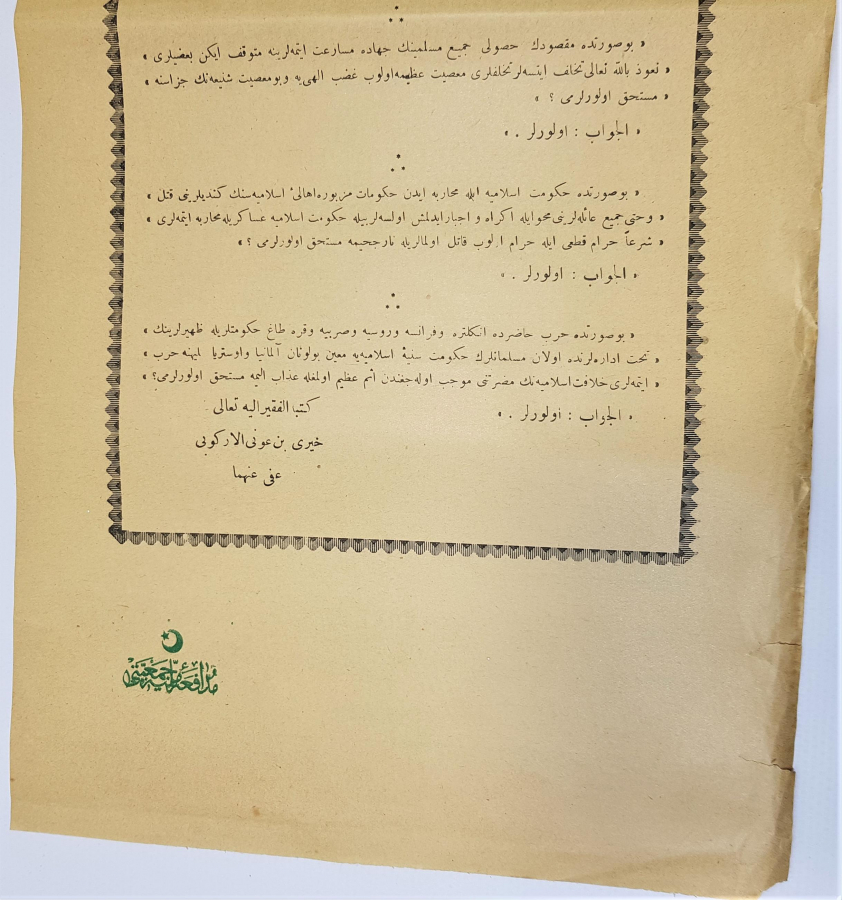 « بوصورتده مقصودك حصولی جمیع مسلمینك جهاده مسارعت ایتمه‌لرینه متوقف ایكن بعضیلری »
« نعوذ بالله تعالی تخلف ایتسه‌لر تخلفلری معصیت عظیمه اولوب غضب الهی‌یه وبومعصیت شنیعه‌نك جزاسنه »
« مستحق اولورلرمی ؟ »
« الجواب : اولورلر . »
« بوصورتده حكومت اسلامیه ایله محاربه ایدن حكومات مزبوره اهالیٔ اسلامیه‌سنك كندیلرینی قتل »
« وحتی جمیع عائله‌لرینی محو ایله اكراه و اجبار ایدلمش اولسه‌لر بیله حكومت اسلامیه عساكریله محاربه ایتمه‌لری »
« شرعاً حرام قطعی ایله حرام اولوب قاتل اولمالریله نارجحیمه مستحق اولورلرمی ؟ »
« الجواب : اولورلر . »
« بوصورتده حرب حاضرده انكلتره وفرانسه وروسیه وصربیه وقره طاغ حكومتلریله ظهیرلرینك »
« تحت اداره‌لرنده اولان مسلمانلرك حكومت سنیهٔ اسلامیه‌یه معین بولونان آلمانیا واوستریا علیهنه حرب »
« ایتمه‌لری خلافت اسلامیه‌نك مضرتنی موجب اوله‌جغندن اثم عظیم اولمغله عذاب الیمه مستحق اولورلرمی؟ »
« الجواب : اولورلر . »
كتبه الفقیر الیه تعالی
خیری بن عونی الاركوبی
عفی عنهما
مدافعهٔ ملیه جمعیتی